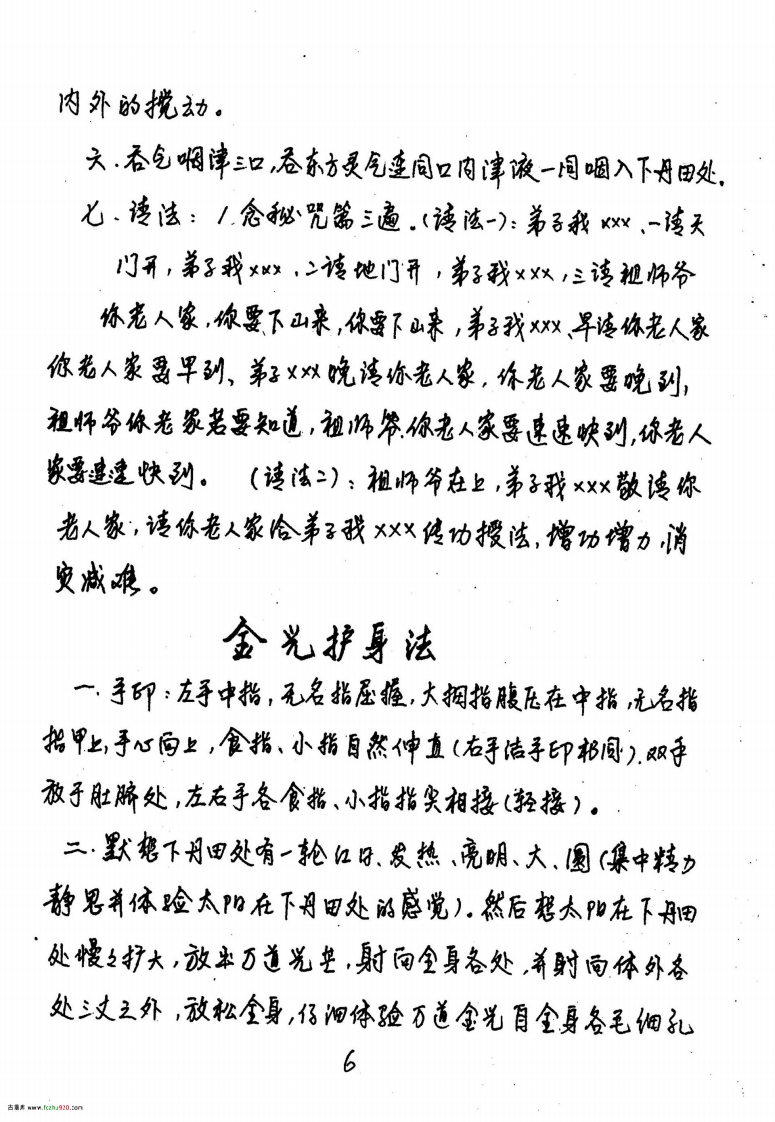 内外的搅动。
六.吞气咽津三口,吞东方灵气连同口内津液一同咽入下丹田处.
七.请法：1.念秘咒第三遍.(请法一)：弟子我xxx、一请天
门开,弟子我xxx、二请地门开,弟子我xxx,三请祖师爷
你老人家,你要下山来,你要下山来,弟子我xxx、早请你老人家
你老人家要早到、弟子xxx晚请你老人家,你老人家要晚到,
祖师爷你老家若要知道,祖师爷.你老人家要速速快到,你老人
家要速速快到。(请法二)：祖师爷在上,弟子我xxx敬请你
老人家,请你老人家给弟子我xxx传功授法,增功增力,消
灾减难。
金光护身法
一.手印：左手中指,无名指屈握,大拇指腹压在中指,无名指
指甲上,手心向上,食指、小指自然伸直(右手法手印相同).双手
放于肚脐处,左右手各食指、小指指尖相接(轻接)。
二.默想下丹田处有一轮红日、发热、亮明、大、圆(集中精力
静思并体验太阳在下丹田处的感觉)。然后想太阳在下丹田
处慢々扩大,放出万道光芒,射向全身各处,并射向体外各
处三丈之外,放松全身,仔细体验万道金光自全身各毛细孔
6
古籍库 www.fczhu920.com